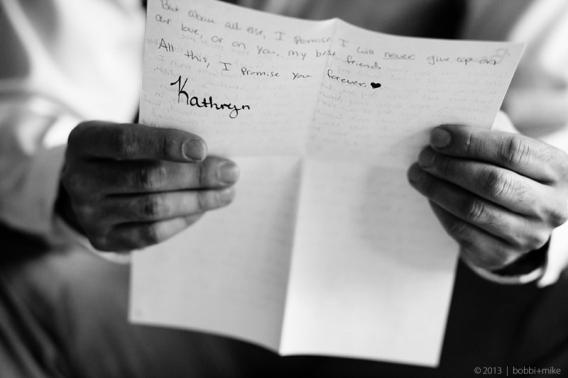 But above all else, I promise I will never give up on
our love, or on you, my best friend.
All this, I promise you forever. ♥
Kathryn
© 2013 | bobbi+mike